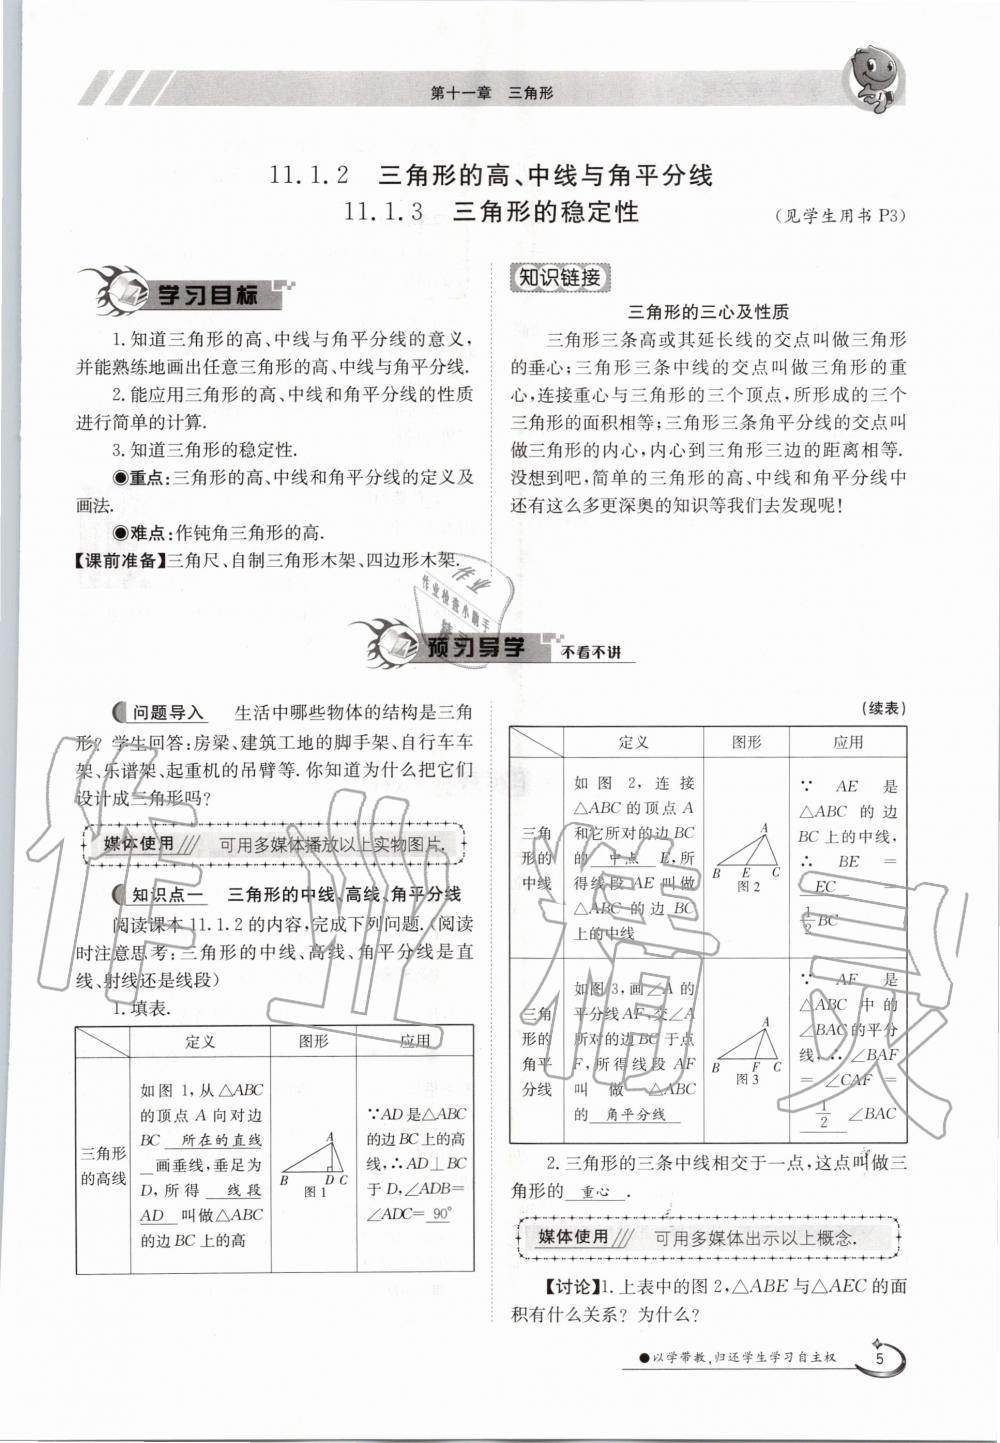 第十一章 三角形
11.1.2 三角形的高、中线与角平分线
11.1.3 三角形的稳定性
(见学生用书 P3)
学习目标
1.知道三角形的高、中线与角平分线的意义,
并能熟练地画出任意三角形的高、中线与角平分线.
2.能应用三角形的高、中线和角平分线的性质
进行简单的计算.
3.知道三角形的稳定性.
●重点:三角形的高、中线和角平分线的定义及
画法.
●难点:作钝角三角形的高.
【课前准备】三角尺、自制三角形木架、四边形木架.
知识链接
三角形的三心及性质
三角形三条高或其延长线的交点叫做三角形
的垂心;三角形三条中线的交点叫做三角形的重
心,连接重心与三角形的三个顶点,所形成的三个
三角形的面积相等;三角形三条角平分线的交点叫
做三角形的内心,内心到三角形三边的距离相等.
没想到吧,简单的三角形的高、中线和角平分线中
还有这么多更深奥的知识等我们去发现呢!
作业
作业检查小助手
精灵
预习导学 不看不讲
问题导入 生活中哪些物体的结构是三角
形?学生回答:房梁、建筑工地的脚手架、自行车车
架、乐谱架、起重机的吊臂等.你知道为什么把它们
设计成三角形吗?
媒体使用 可用多媒体播放以上实物图片.
知识点一 三角形的中线、高线、角平分线
阅读课本 11.1.2 的内容,完成下列问题.(阅读
时注意思考:三角形的中线、高线、角平分线是直
线、射线还是线段)
1.填表.
定义 图形 应用
三角形
的高线
如图 1,从△ABC
的顶点 A 向对边
BC 所在的直线
画垂线,垂足为
D,所得 线段
AD 叫做△ABC
的边 BC 上的高
A
B D C
图 1
∵AD是△ABC
的边 BC 上的高
线,∴AD⊥BC
于 D,∠ADB=
∠ADC= 90°
(续表)
定义 图形 应用
三角
形的
中线
如图 2,连接
△ABC 的顶点 A
和它所对的边 BC
的 中点 E,所
得线段 AE 叫做
△ABC 的边 BC
上的中线
A
B E C
图 2
∵ AE 是
△ABC 的边
BC 上的中线,
∴ BE =
EC =
1/2 BC
三角
形的
角平
分线
如图 3,画∠A 的
平分线 AF,交∠A
所对的边 BC 于点
F,所得线段 AF
叫做 △ABC
的 角平分线
A
B F C
图 3
∵ AF 是
△ABC 中的
∠BAC 的平分
线,∴∠BAF
= ∠CAF =
1/2 ∠BAC
2.三角形的三条中线相交于一点,这点叫做三
角形的 重心 .
媒体使用 可用多媒体出示以上概念.
【讨论】1.上表中的图 2,△ABE 与△AEC 的面
积有什么关系?为什么?
●以学带教,归还学生学习自主权
5
作业精灵